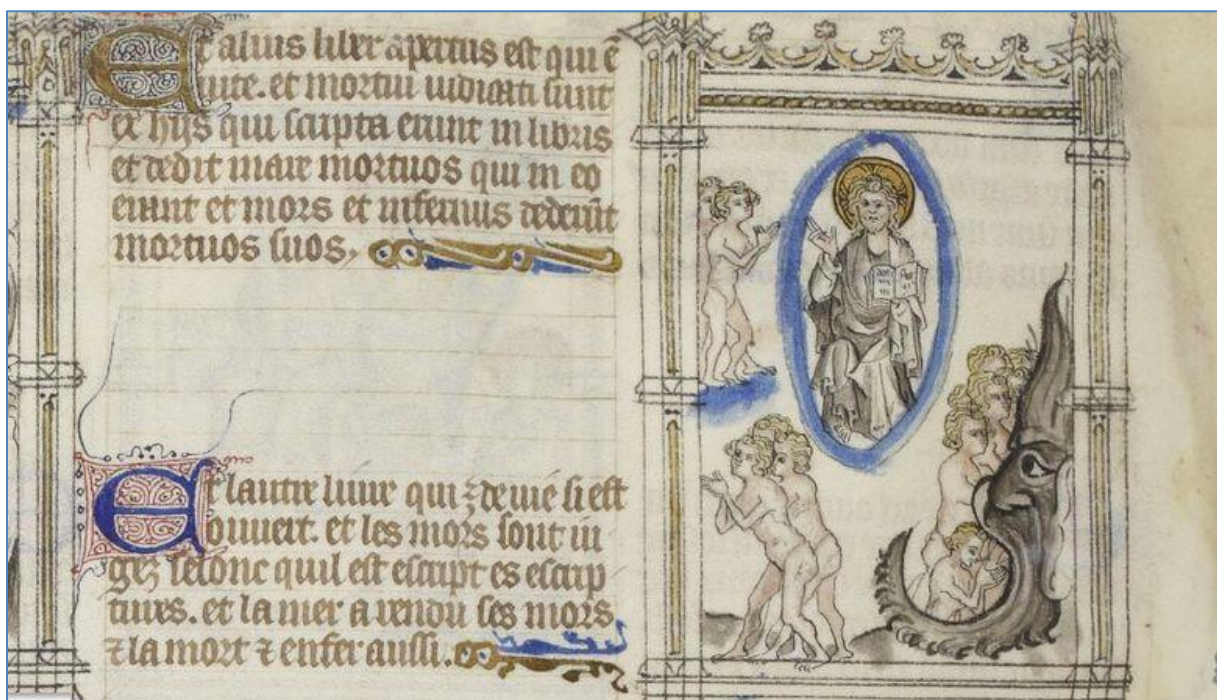 Et alius liber apertus est qui ē
uite. et mortui iudicati sunt
ex hijs qui scripta erunt in libris
et dedit mare mortuos qui in eo
erant et mors et infernus dederūt
mortuos suos.
Et lautre liure qui ⁊ de uie si est
ouuert. et les mors sont iu
gez selonc quil est escript es escrip
tures. et la mer a rendu ses mors
⁊ la mort ⁊ enfer aussi.